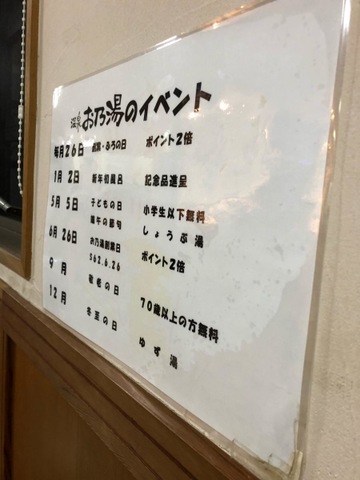 温泉 お乃湯のイベント
毎月26日 お湯・ふろの日 ポイント2倍
1月 2日 新年初風呂 記念品進呈
5月 5日 子どもの日 小学生以下無料
端午の節句 しょうぶ湯
6月 26日 お乃湯創業日 ポイント2倍
S62.6.26
9 月 敬老の日 70歳以上の方無料
12月 冬至の日 ゆず湯